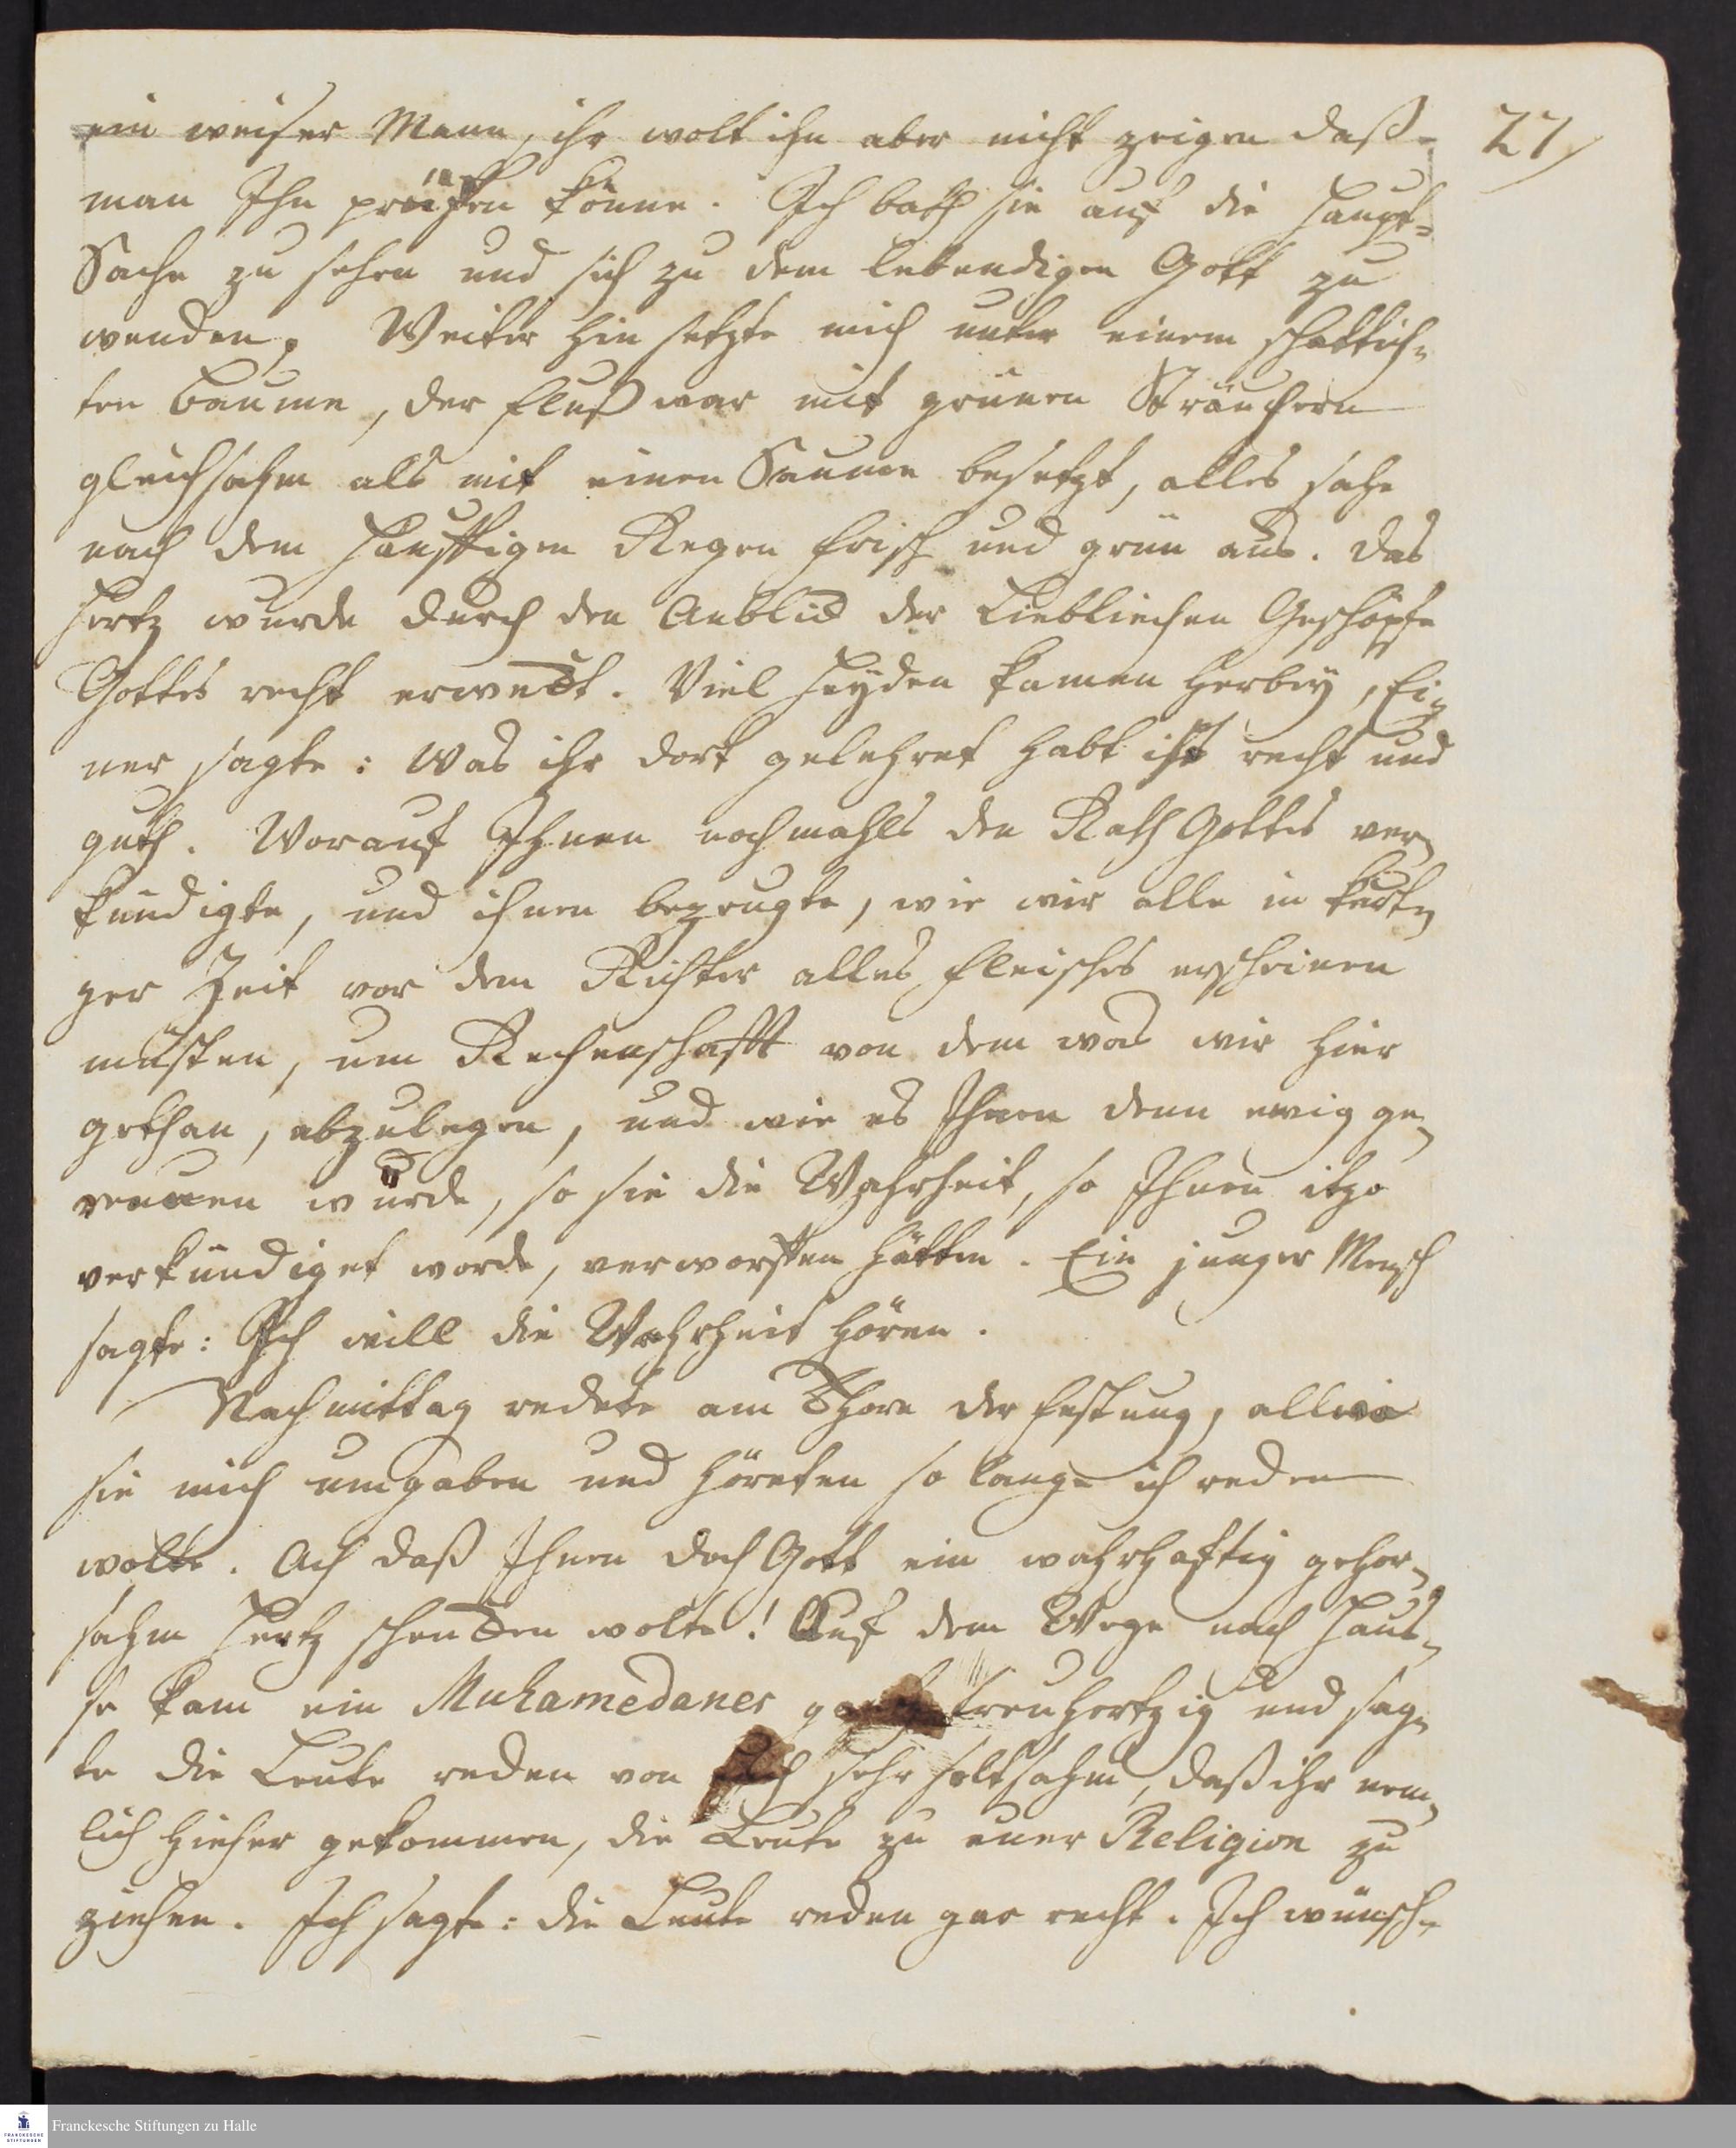 ein weiser Mann, ihr wolt ihn aber nicht zeigen daß
27/
man Ihn prüffen könne. Ich bath sie auf die Haupt-
Sache zu sehen und sich zu dem lebendigen Gott zu
wenden. Weiter hin setzte mich unter einem schattich-
ten Baume, der Fluß war mit grünen Sträuchern
gleichsahm als mit einen Saume besetzt, alles sahe
nach dem häuffigen Regen frisch und grün aus. Das
Hertz wurde durch den Anblick der Liebliechen Geschöpfe
Gottes recht erweckt. Viel Heyden kamen herbey, Ei-
ner sagte: Was ihr dort gelehret habt ist recht und
guth. Worauf Ihnen nochmahls den Rath Gottes ver-
kündigte, und ihnen bezeugte, wie wir alle in kurt-
zer Zeit vor dem Richter alles Fleisches erscheinen
müsten, um Rechenschafft von dem was wir hier
gethan, abzulegen, und wie es Ihnen denn ewig ge-
reuen würde, so sie die Wahrheit, so Ihnen itzo
verkündiget worde, verworffen hätten. Ein junger Mensch
sagte: Ich will die Wahrheit hören.
Nachmittag redete am Thore der Festung, allwo
sie mich umgaben und höreten so lange ich reden
wolte. Ach daß Ihnen doch Gott ein wahrhafftig gehor-
sahm Hertz schencken wolte! Auf dem Wege nach Hau-
se kam ein Muhamedaner treuhertzig und sag-
te die Leute reden von sehr seltsahm, daß ihr nem-
lich hieher gekommen, die Leute zu euer Religion zu
ziehen. Ich sagte: die Leute reden gar recht. Ich wünsch-
Franckesche Stiftungen zu Halle
FRANCKESCHE
STIFTUNGEN